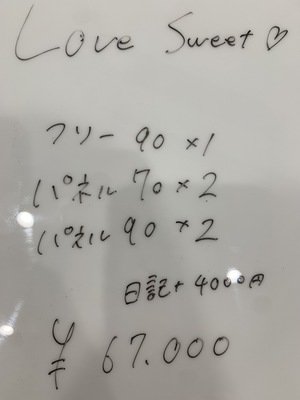 Love Sweet♡
フリー 90×1
パネル 70×2
パネル 90×2
日記+4000円
¥67.000